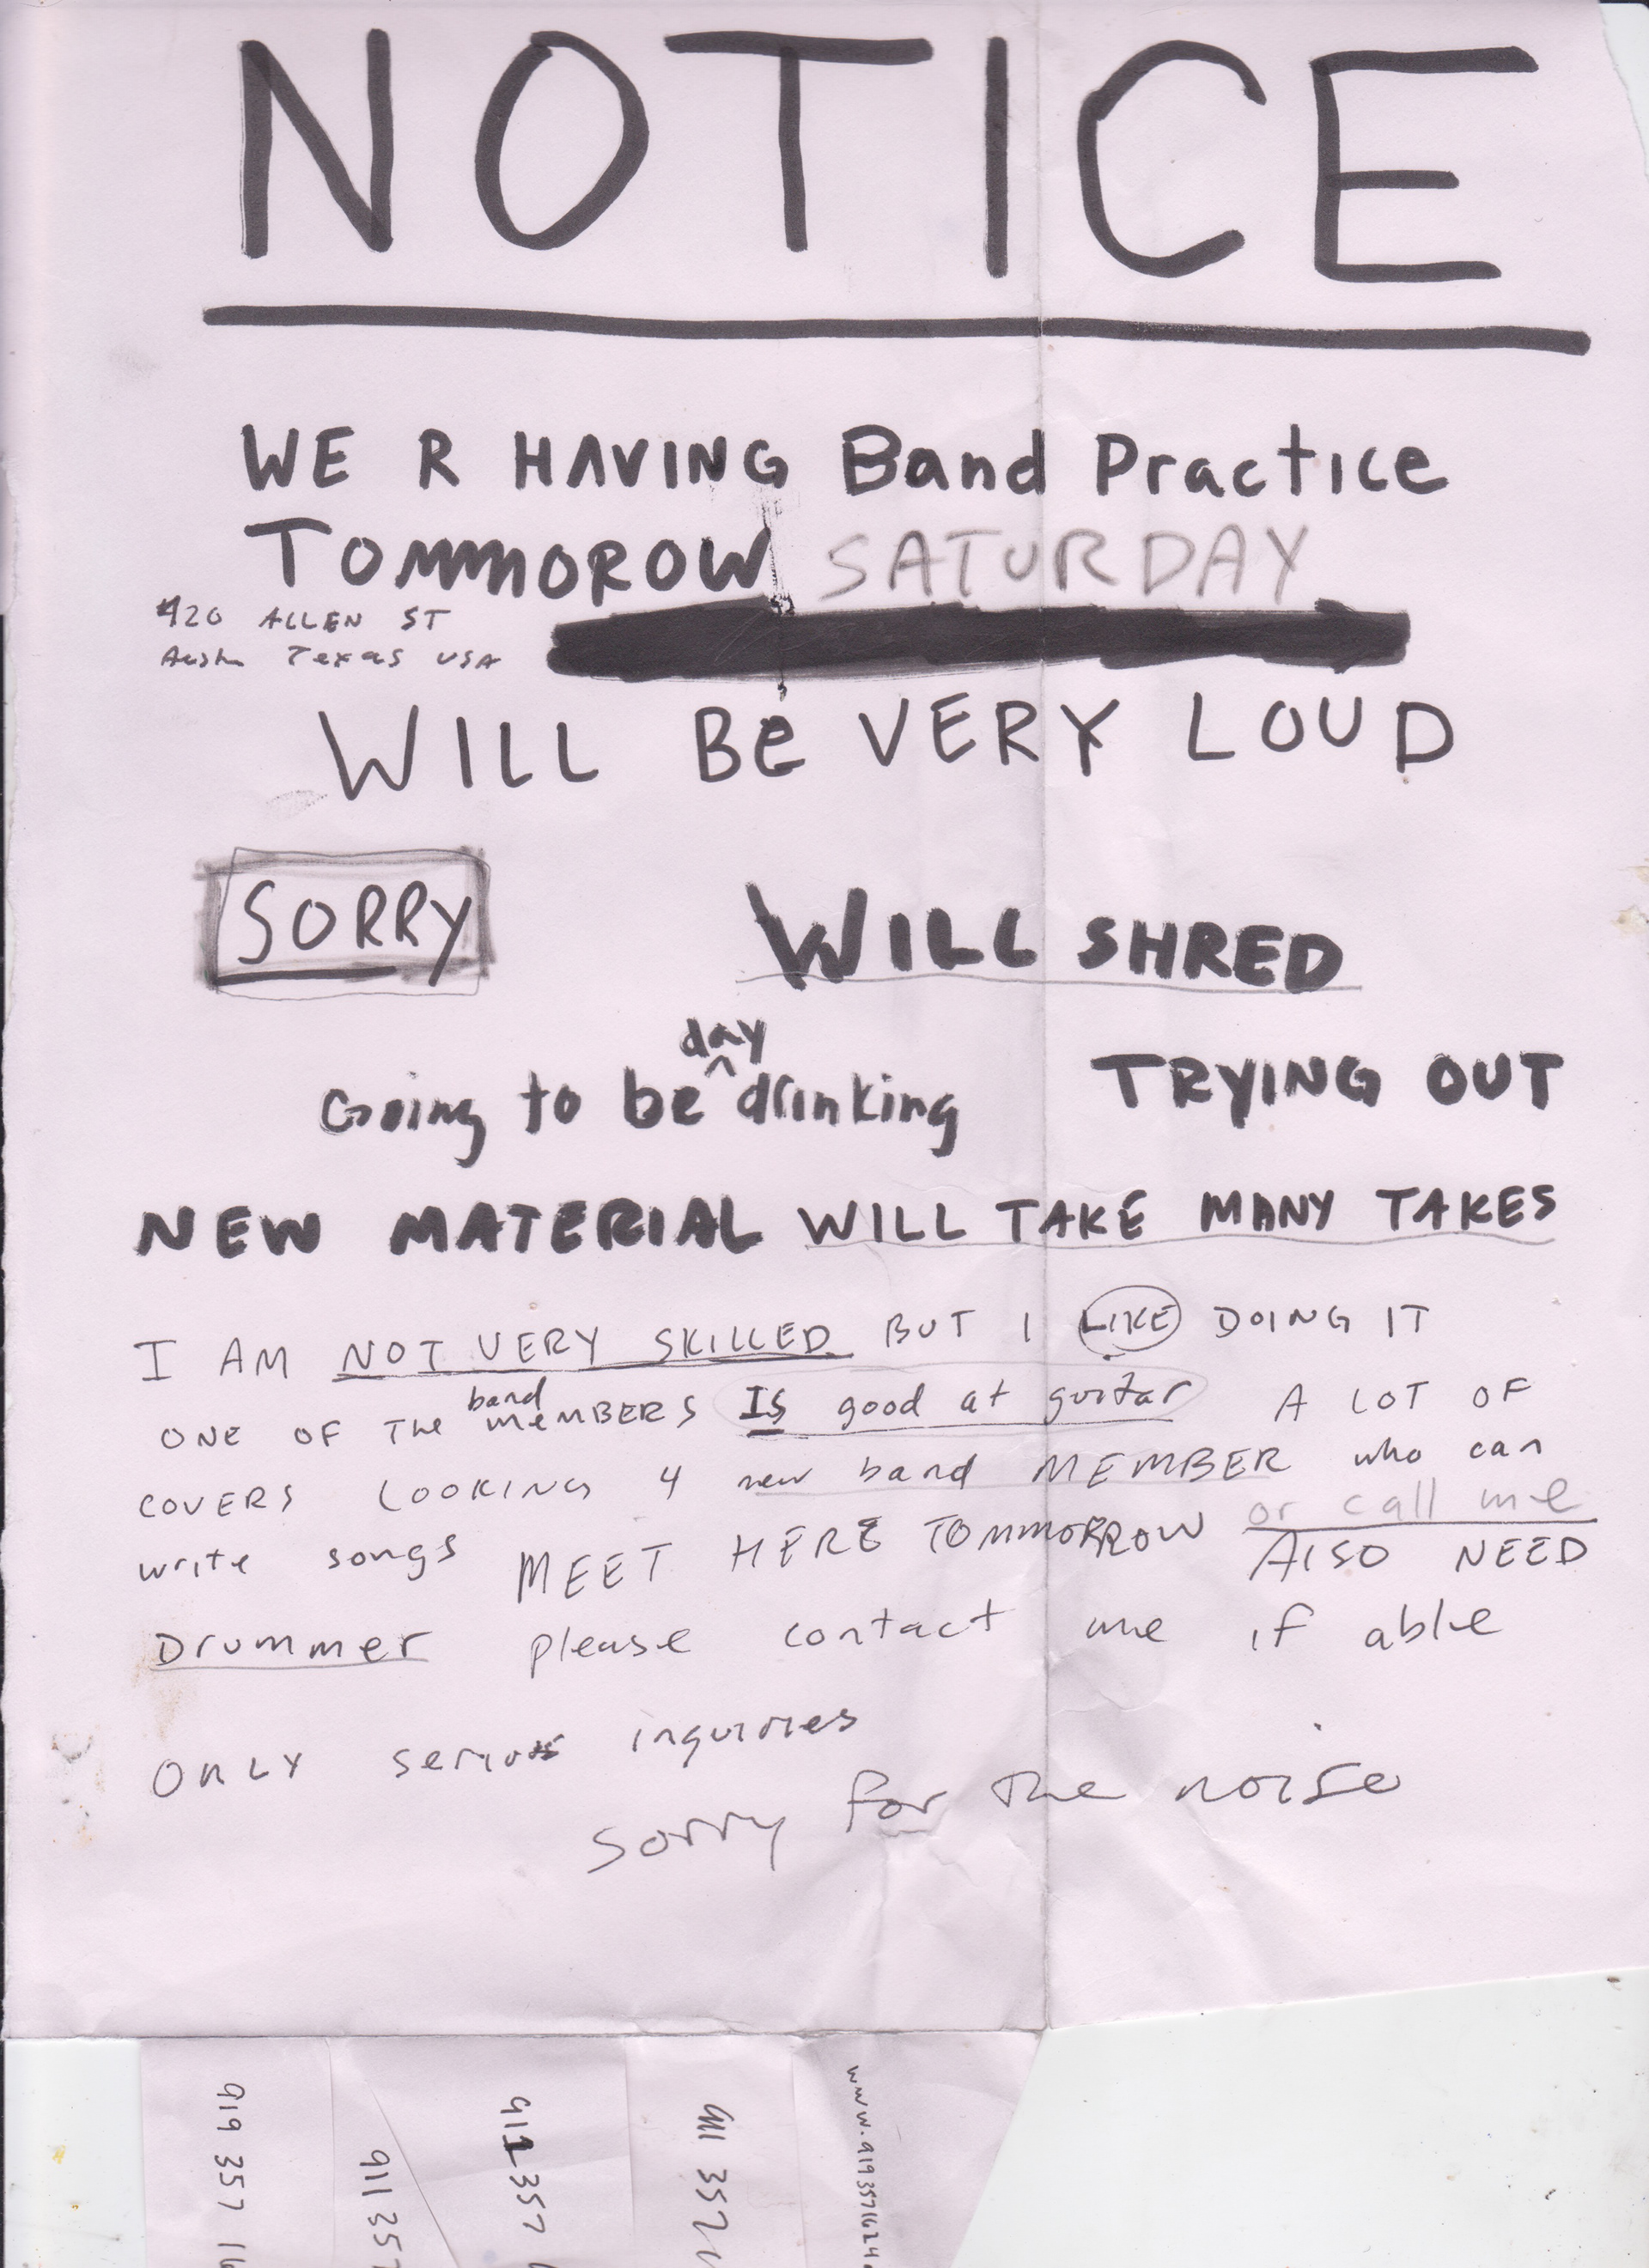 NOTICE
WE R HAVING Band Practice
TOMMOROW SATURDAY
420 ALLEN ST
Austin Texas USA
WILL Be VERY LOUD
SORRY
WILL SHRED
day
Going to be ^ drinking
TRYING OUT
NEW MATERIAL WILL TAKE MANY TAKES
I AM NOT VERY SKILLED BUT I LIKE DOING IT
band
ONE OF THE meMBERS IS good at guitar A LOT OF
COVERS LOOKING 4 new band MEMBER who can
write songs MEET HERE TOMMORROW or call me
AlSO NEED
Drummer please contact me if able
ONLY serious inquiries
sorry for the noise
919 357 16
911 357
912 357
911 357
www.9193571624